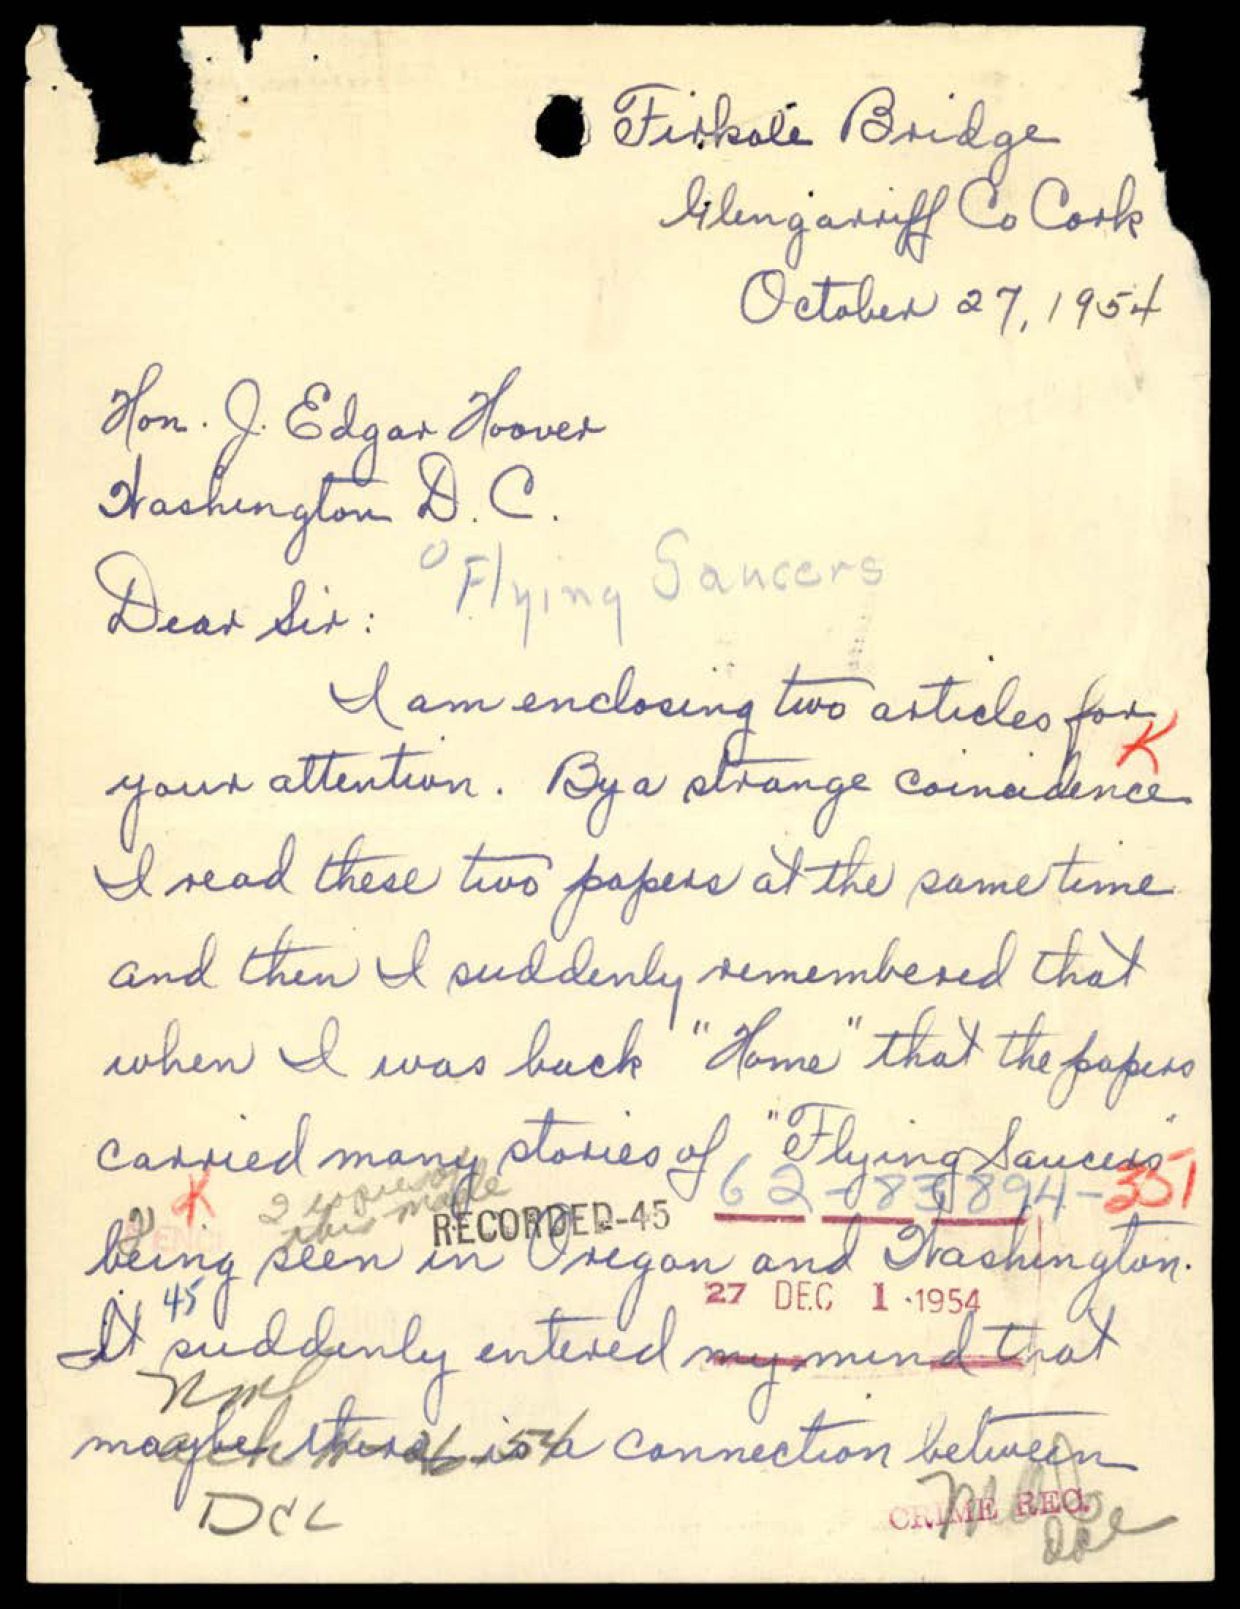 Firkale Bridge
Glengarriff Co Cork
October 27, 1954
Hon. J. Edgar Hoover
Washington D. C.
Flying Saucers
Dear Sir:
I am enclosing two articles for
K
your attention. By a strange coincidence
I read these two papers at the same time
and then I suddenly remembered that
when I was back "Home" that the papers
carried many stories of "Flying Saucers"
62-83894-351
K
2 copies of
this made
RECORDED-45
being seen in Oregon and Washington.
45
27 DEC 1 1954
It suddenly entered my mind that
maybe there is a connection between
CRIME REC.